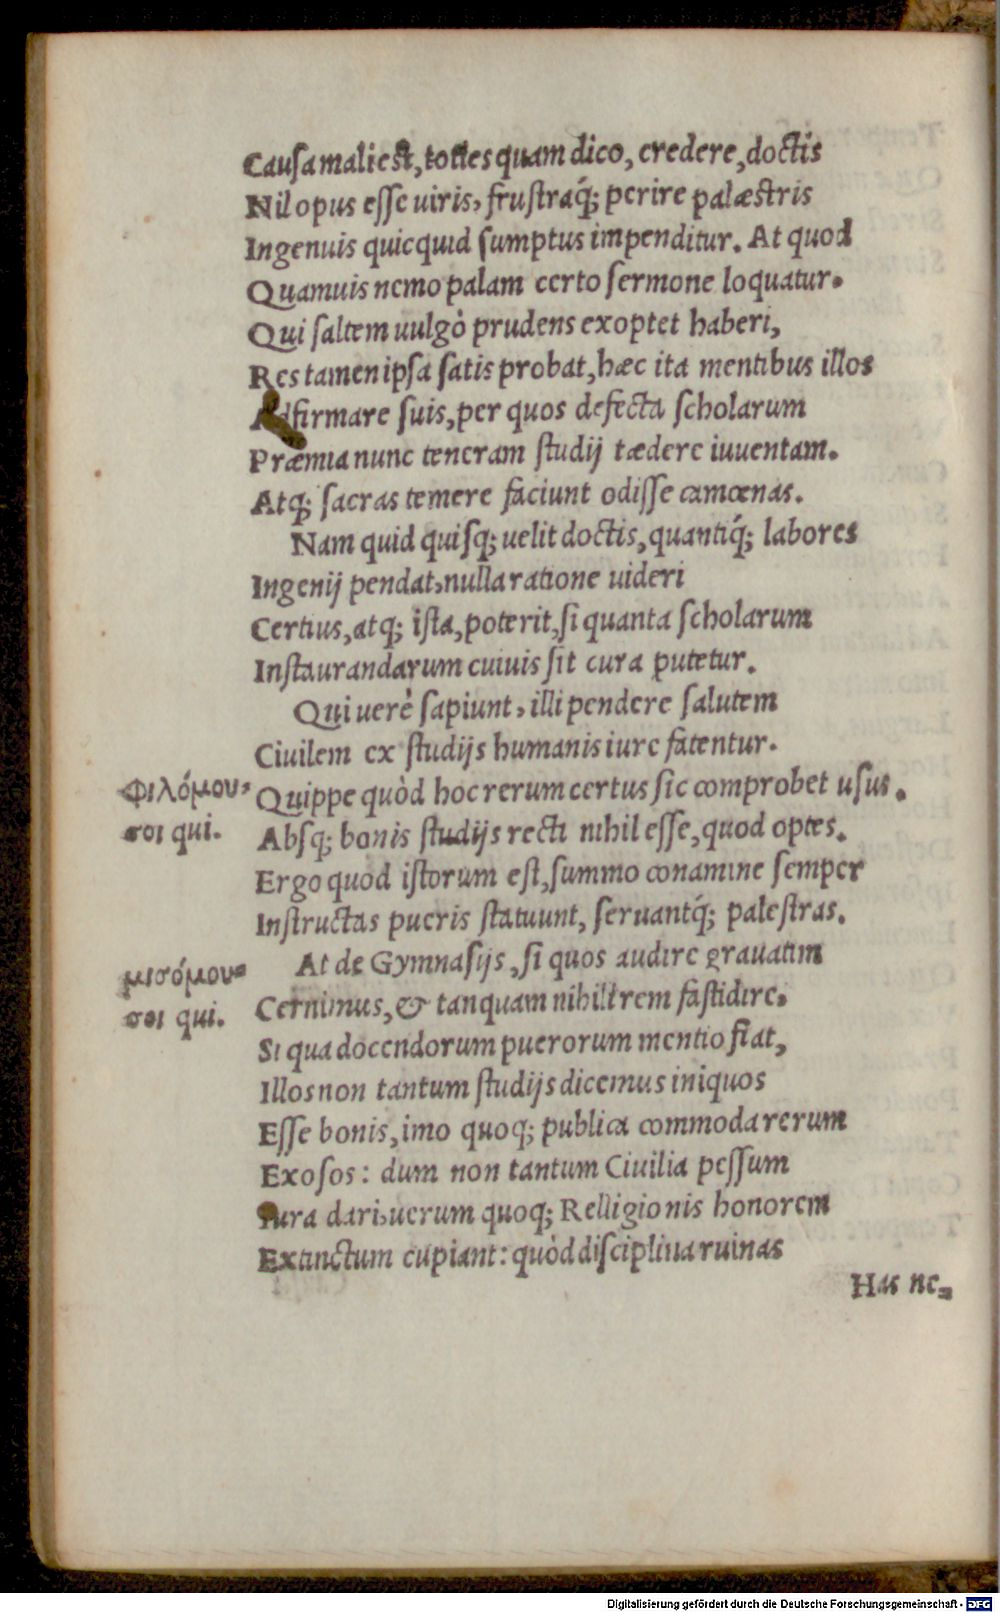 Causa mali est, toties quam dico, credere, doctis
Nil opus esse uiris, frustraq́; perire palæstris
Ingenuis quicquid sumptus impenditur. At quod
Quamuis nemo palam certo sermone loquatur.
Qui saltem uulgò prudens exoptet haberi,
Res tamen ipsa satis probat, hæc ita mentibus illos
Adfirmare suis, per quos defecta scholarum
Præmia nunc teneram studij tædere iuuentam.
Atq; sacras temere faciunt odisse camœnas.
Nam quid quisq; uelit doctis, quantiq́; labores
Ingenij pendat, nulla ratione uideri
Certius, atq; ista, poterit, si quanta scholarum
Instaurandarum cuiuis sit cura putetur.
Qui uerè sapiunt, illi pendere salutem
Ciuilem ex studijs humanis iure fatentur.
Φιλόμου-
σοι qui.
Quippe quòd hoc rerum certus sic comprobet usus.
Absq; bonis studijs recti nihil esse, quod optes.
Ergo quod istorum est, summo conamine semper
Instructas pueris statuunt, seruantq́; palestras.
At de Gymnasijs, si quos audire grauatim
μισόμου-
σοι qui.
Cernimus, & tanquam nihili rem fastidire.
Si qua docendorum puerorum mentio fiat,
Illos non tantum studijs dicemus iniquos
Esse bonis, imo quoq; publica commoda rerum
Exosos: dum non tantum Ciuilia pessum
Iura dari, uerum quoq; Relligionis honorem
Extinctum cupiant: quòd disciplina ruinas
Has ne-
Digitalisierung gefördert durch die Deutsche Forschungsgemeinschaft - DFG